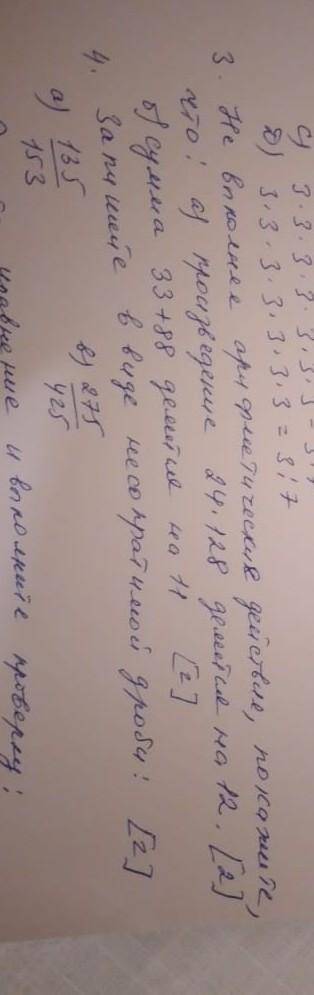 C) 3·3·3·3·3·3·3 = 3;7
D) 3·3·3·3·3·3·3 = 3;7
3. Не выполняя арифметические действия, покажите,
что: а) произведение 24·128 делится на 12. [2]
б) сумма 33+88 делится на 11 [2]
4. Запишите в виде несократимой дроби: [2]
а) 135/153 в) 275/425
уравнение и выполните проверку: